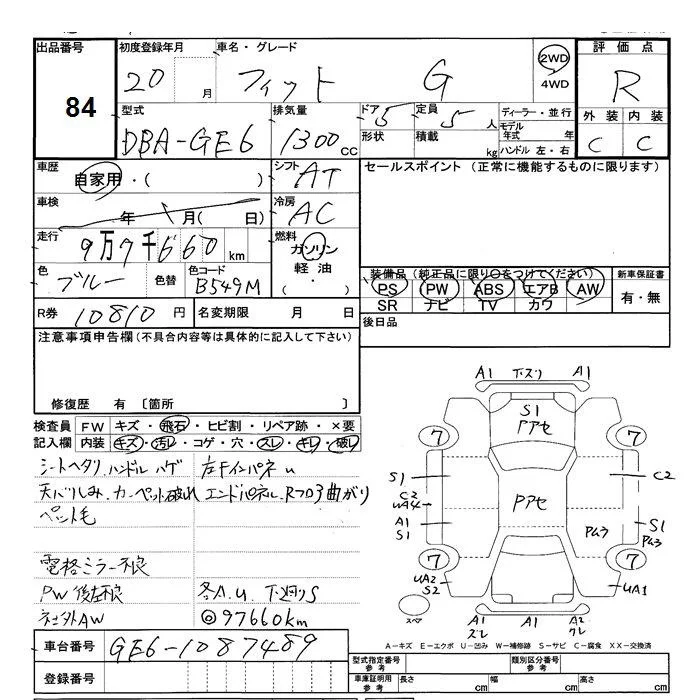 出品番号
84
初度登録年月
20 月
車名・グレード
フィット G
2WD
4WD
評価点
R
外装 内装
C C
型式
DBA-GE6
排気量
1300 cc
ドア 5
形状
定員 5 人
積載 kg
ディーラー・並行
モデル年式 年
ハンドル 左・右
車歴 自家用・( )
シフト AT
セールスポイント (正常に機能するものに限ります)
車検 年 月( 日)
冷房 AC
走行 9万7千660km
燃料 ガソリン
軽油
( ・ )
色 ブルー 色替
色コード B549M
装備品(純正品に限り○をつけてください)
PS PW ABS エアB AW
SR ナビ TV カワ
新車保証書
有・無
R券 10810 円
名変期限 月 日
後日品
注意事項申告欄(不具合内容等は具体的に記入して下さい)
修復歴 有 〔箇所 〕
検査員 FW キズ・飛石・ヒビ割・リペア跡・×要
記入欄 内装 キズ・汚レ・コゲ・穴・スレ・キレ・破レ
シートヘタリ.ハンドルハゲ
天バリしみ.カーペット破れ
ペット毛
電格ミラー不良
PW後左不良
社外AW
左Fインパネu
エンドパネル.Rフロア曲がり
各A.U.下廻りS
◎97660km
A1 下スリ A1
S1
Pアセ
7 7
S1
C2
UA4
A1
S1
Pアセ
C2
Pムラ
S1
Pムラ
7 7
UA2
S2
UA1
スペア
A1 A1 A2
A-キズ E-エクボ U-凹み W-補修跡 S-サビ C-腐食 XX-交換済
車台番号 GE6-1087489
登録番号
型式指定番号
参考
類別区分番号
参考
車庫証明用
参考
長さ cm 幅 cm 高さ cm